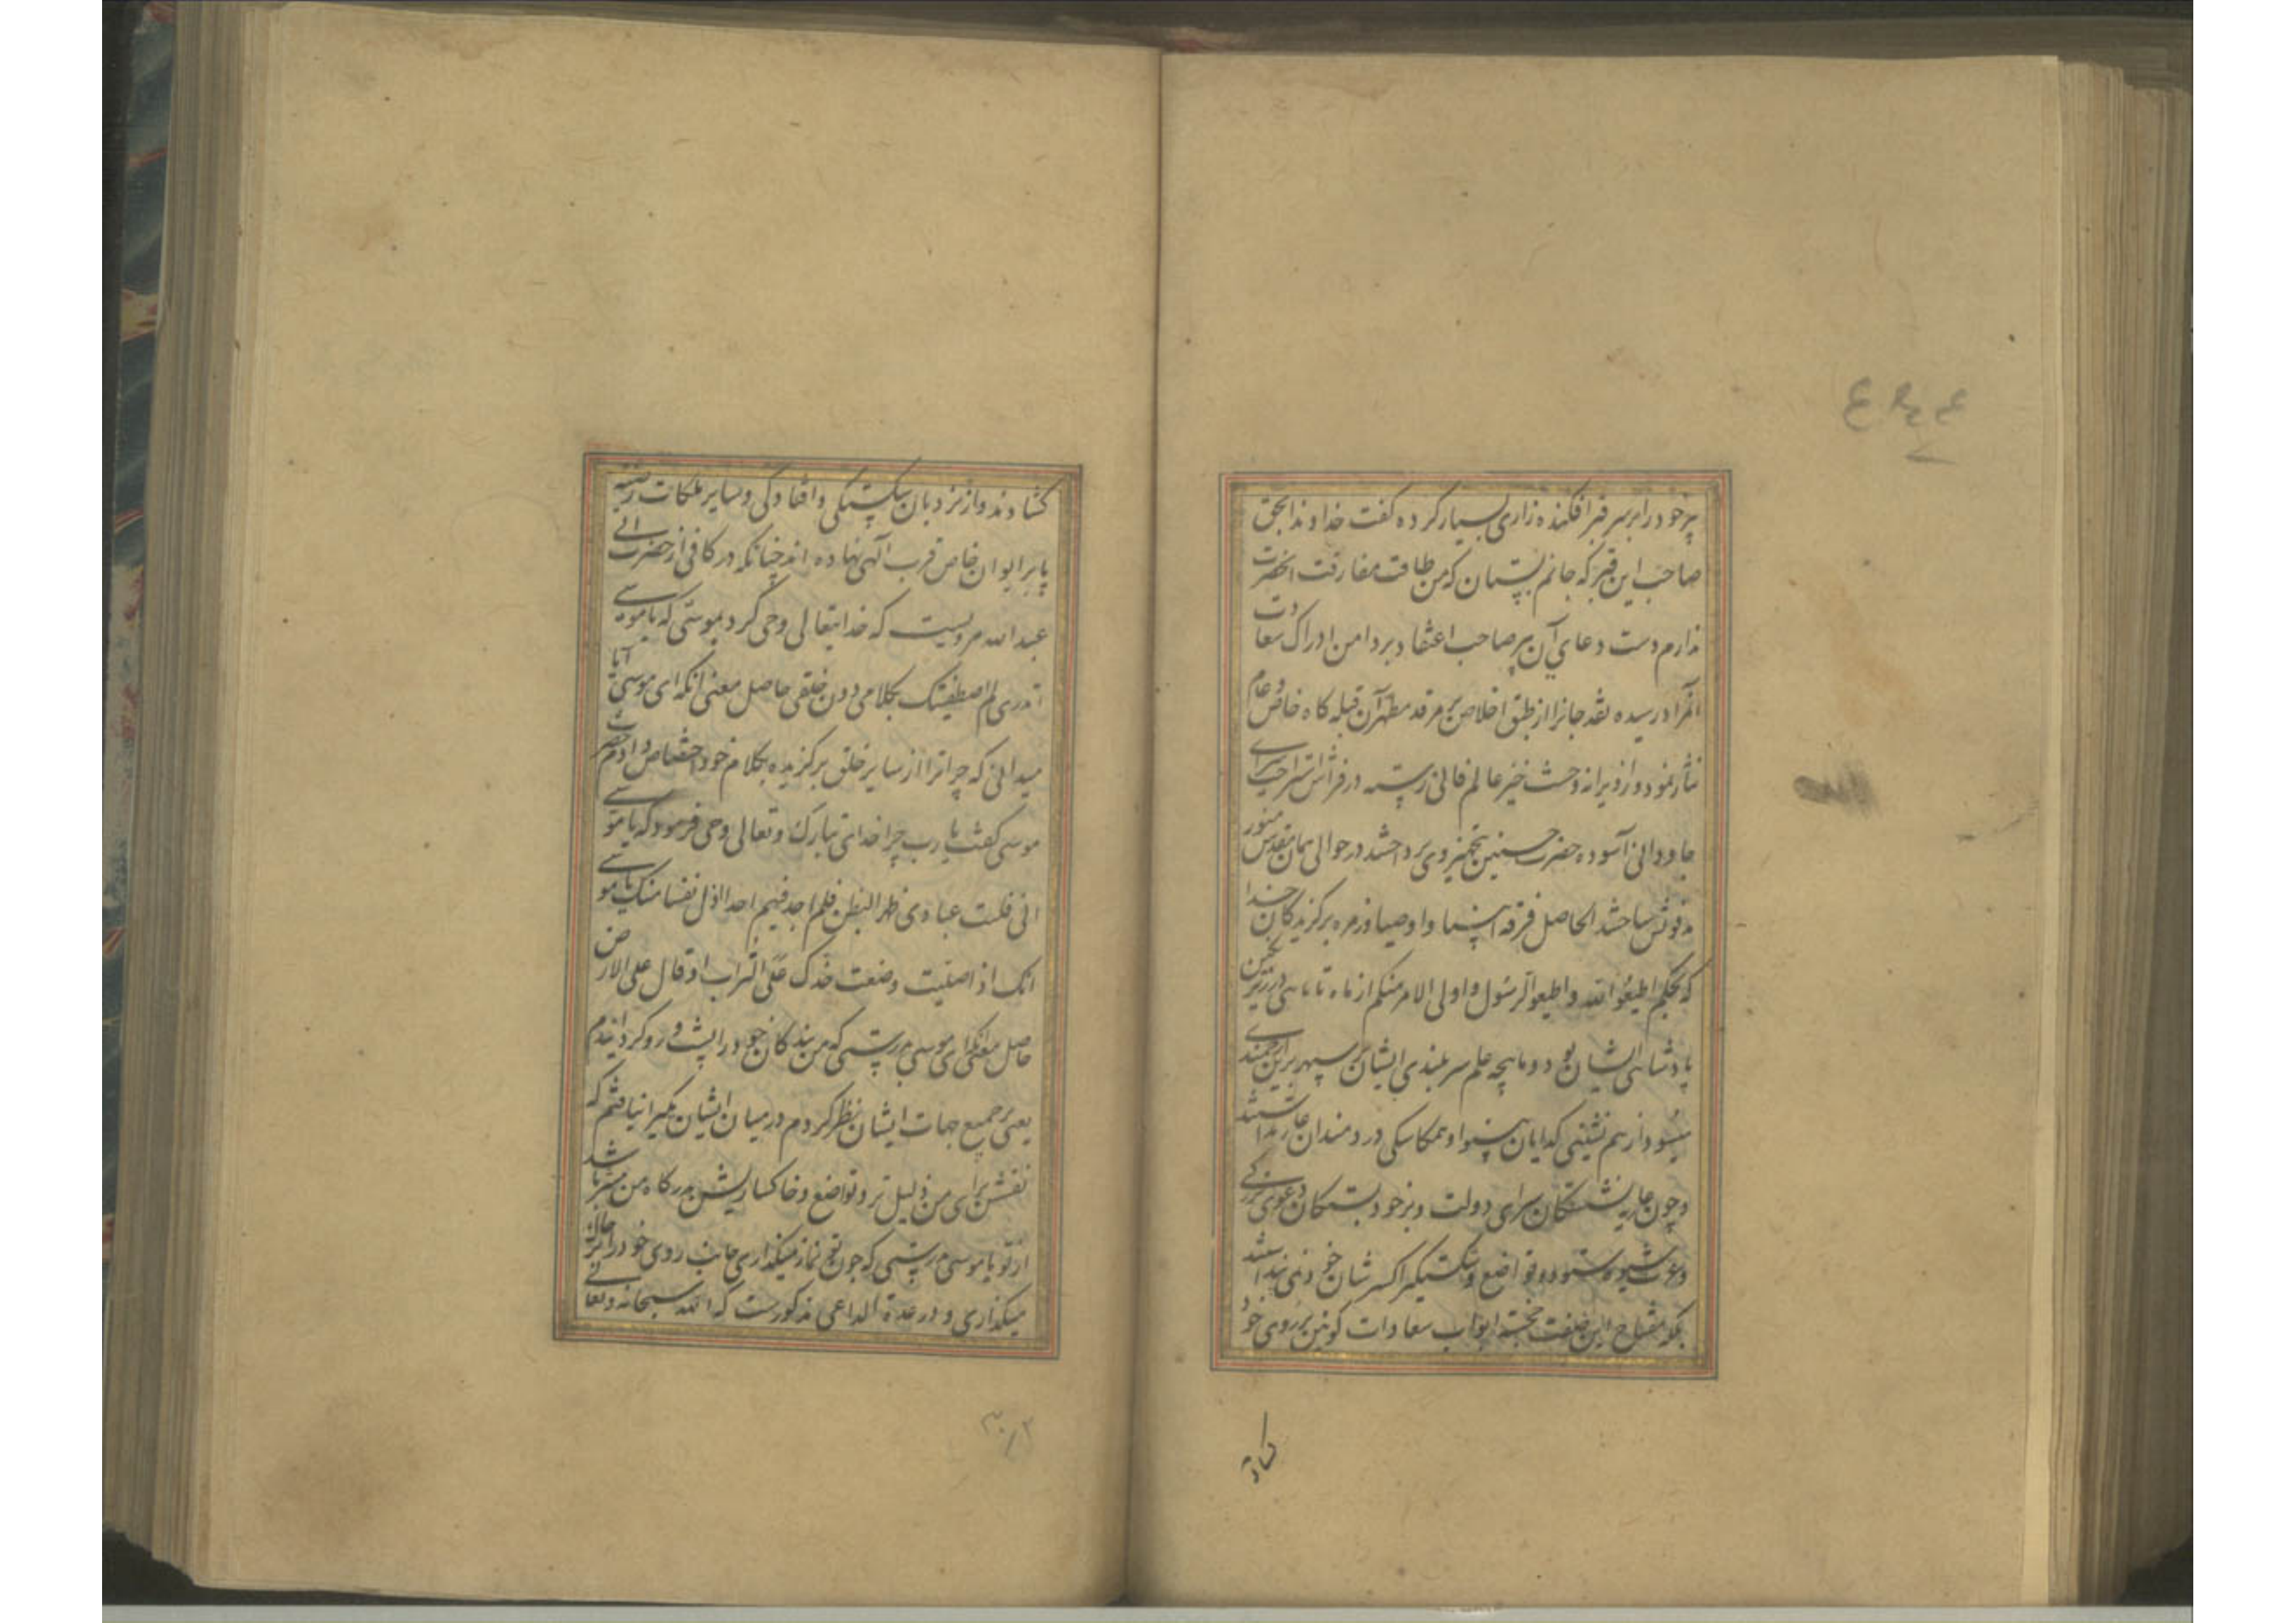 پیر خود را بر سر قبر افکنده زاری بسیار کرده گفت خداوندا بحق
صاحب این قبر که جانم بستان که من طاقت مفارقت انحضرت
ندارم دست دعای آن پیر صاحب اعتقاد بر دامن ادراک سعادت
رسیده نقد جانرا از طبق اخلاص بر مرقد مطهر آن قبله کاه خاص و عام
نثار نمود و از ویرانه وحشت خیز عالم فانی رسته در فراش سرای
جاودانی آسوده حضرت حسنین بتجهیز وی پرداختند در حوالی همان مقدس منور
مدفونش ساختند الحاصل فرقه انبیا و اوصیا و زمره برکزیدکان خدا
که بحکم اطیعوا الله و اطیعوا الرسول و اولی الامر منکم از ماه تا ماهی در زیر نکین
پادشاهی ایشان بود و ماهچه علم سر بلندی ایشان بر سپهر برین
از هم نشینی کدایان بینوا و همکاسکی دردمندان عار نداشتند
و چون سرای دولت و بر خود بستکان دعوی بزرکی
و تواضع و
بلکه بمفتاح این خصلت خجسته ابواب سعادات کونین بر روی خود
کشاد
کشادند و از نردبان شکستکی و افتادکی و سایر ملکات رضیه
پا بر ایوان خاص قرب الهی نهاده اند چنانکه در کافی از حضرت ابی
عبد الله مرویست که خدایتعالی وحی کرد بموسی که یا موسی
اتدری لم اصطفیتک بکلامی دون خلقی حاصل معنی انکه ای موسی آیا
میدانی که چرا ترا از سایر خلق برکزیده بکلام خود اختصاص دادم حضرت
موسی کفت یا رب چرا خدای تبارک و تعالی وحی فرمود که یا موسی
انی قلبت عبادی ظهرا لبطن فلم اجد فیهم احدا اذل نفسا منک یا موسی
انک اذا صلیت وضعت خدک علی التراب او قال علی الارض
حاصل معنی انکه ای موسی بدرستی که من بندکان خود را پشت و رو کردانیدم
یعنی بر جمیع جهات ایشان نظر کردم در میان ایشان یکیرا نیافتم که
نفسش برای من ذلیل تر و تواضع و خاکساریش بدرکاه من بیشتر باشد
از تو یا موسی بدرستی که چون تو نماز میکذاری جانب روی خود را بر خاک
میکذاری و در عدة الداعی مذکورست که الله سبحانه و تعالی